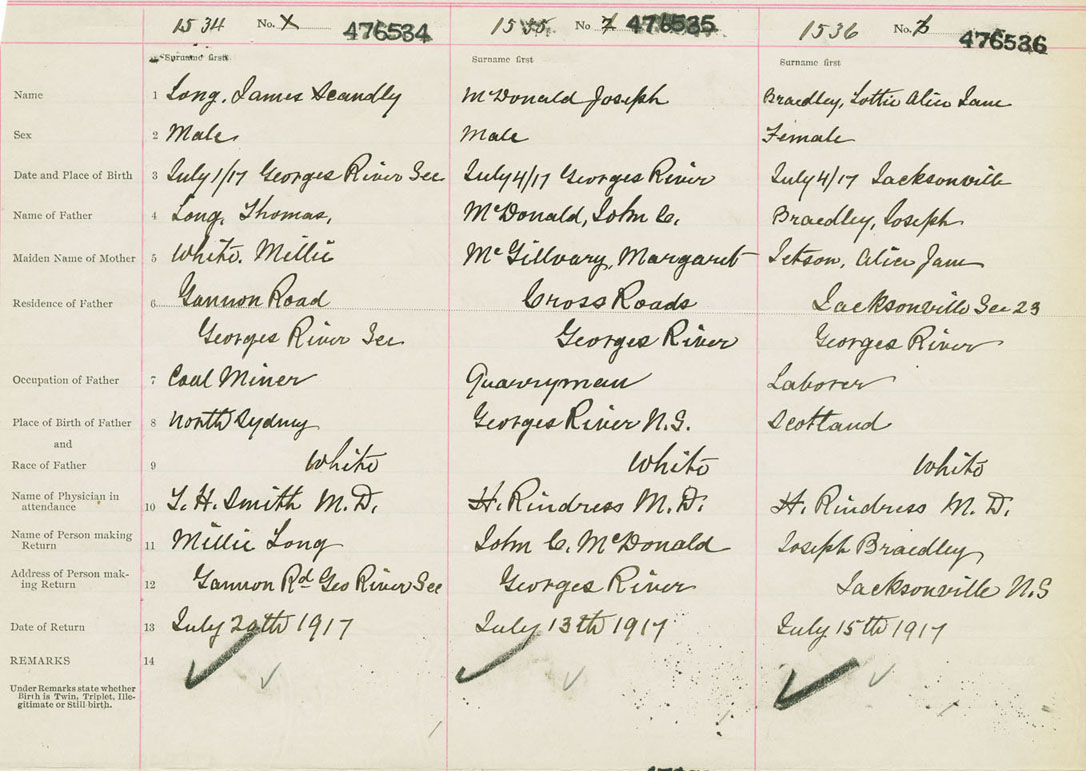 1534 No. X 476534 1535 No 7 476535 1536 No. 8 476536
Surname first Surname first Surname first
Name 1 Long, James Scandly McDonald Joseph Braedley, Lottie Alice Jane
Sex 2 Male Male Female
Date and Place of Birth 3 July 1/17 Georges River Sec July 4/17 Georges River July 4/17 Jacksonville
Name of Father 4 Long, Thomas, McDonald, John C. Braedley, Joseph
Maiden Name of Mother 5 White. Millie McGillvary, Margaret Jetson, Alice Jane
Residence of Father 6 Gannon Road Cross Roads Jacksonville Sec 23
Georges River Sec Georges River Georges River
Occupation of Father 7 Coal Miner Quarryman Laborer
Place of Birth of Father 8 North Sydney Georges River N.S. Scotland
and
Race of Father 9 White White White
Name of Physician in
attendance 10 T. H. Smith M.D. H. Rindress M.D. H. Rindress M.D.
Name of Person making
Return 11 Millie Long John C. McDonald Joseph Braedley
Address of Person mak-
ing Return 12 Gannon Rd Geo River Sec Georges River Jacksonville N.S
Date of Return 13 July 20th 1917 July 13th 1917 July 15th 1917
REMARKS 14
Under Remarks state whether
Birth is Twin, Triplet, Ille-
gitimate or Still birth.